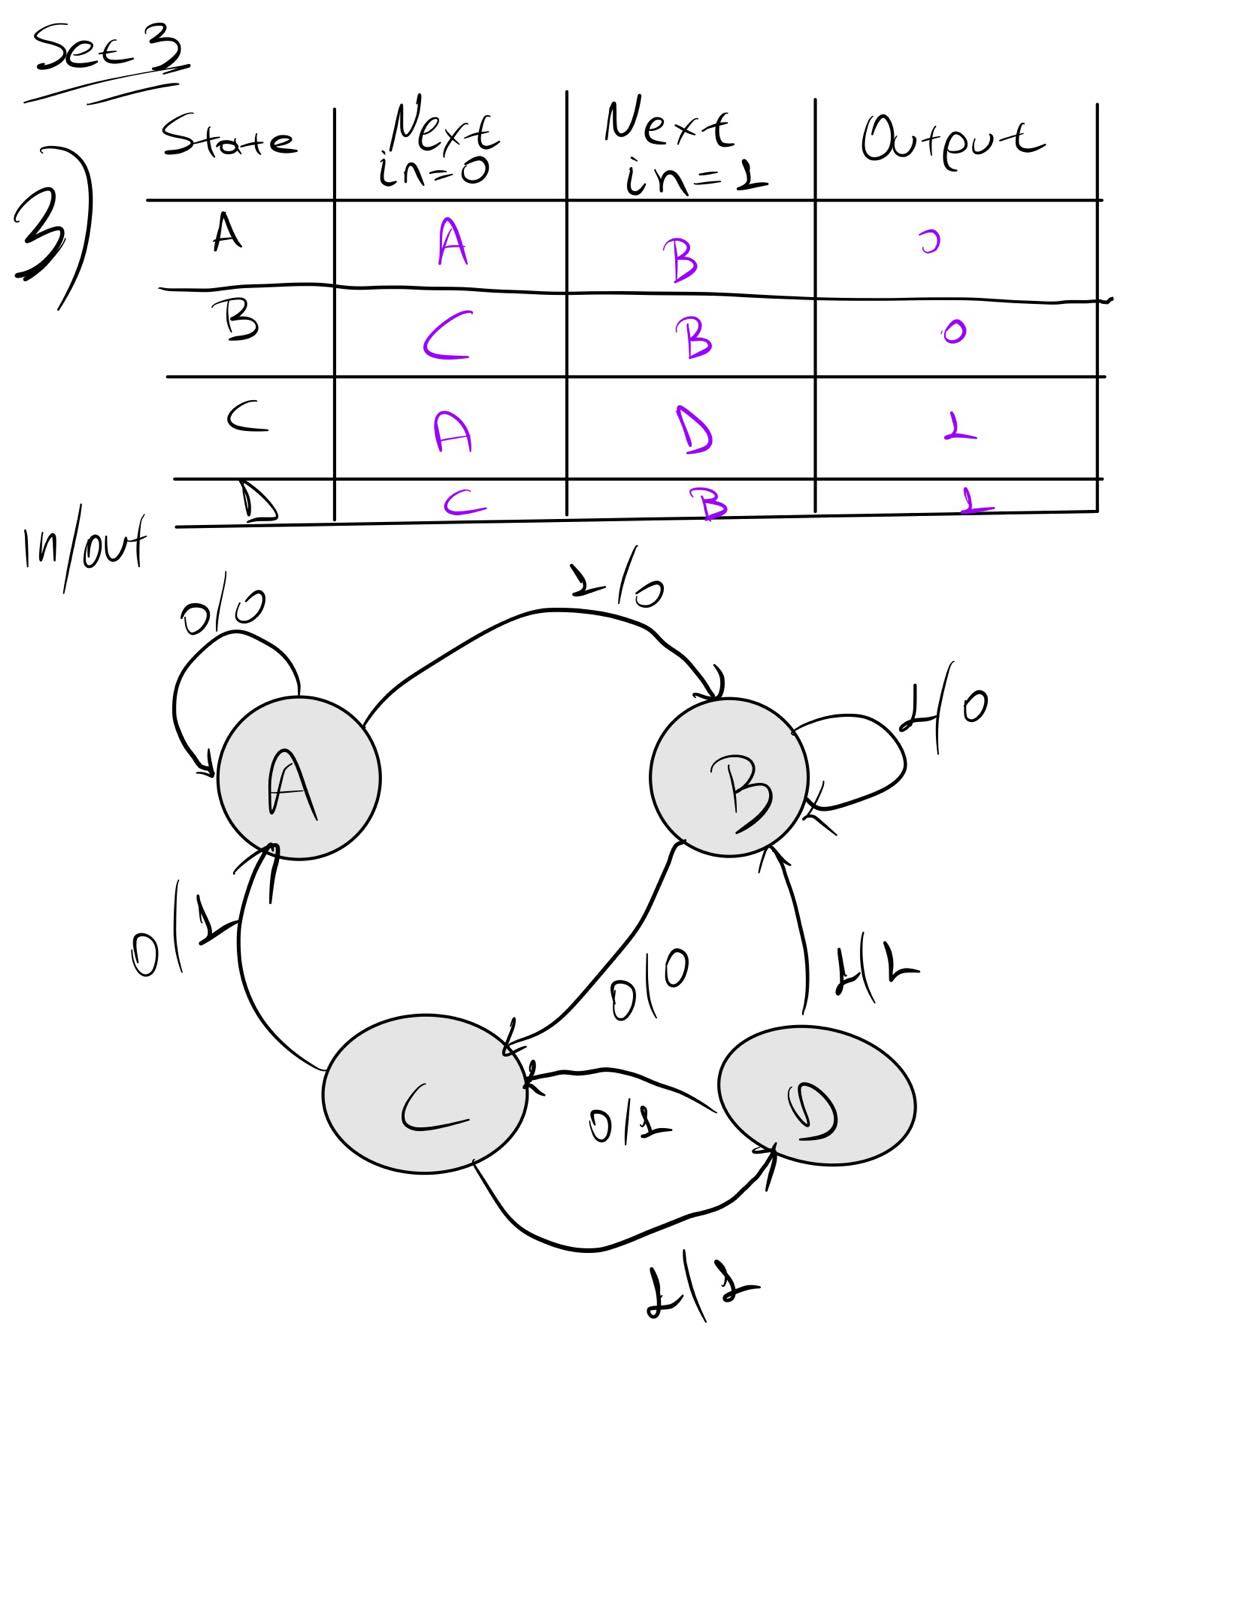 Sec 3
3)
State Next in=0 Next in=1 Output
A A B 0
B C B 0
C A D 1
D C B 1
in/out
0/0
1/0
1/0
A
B
0/1
0/0
1/1
C
D
0/1
1/1